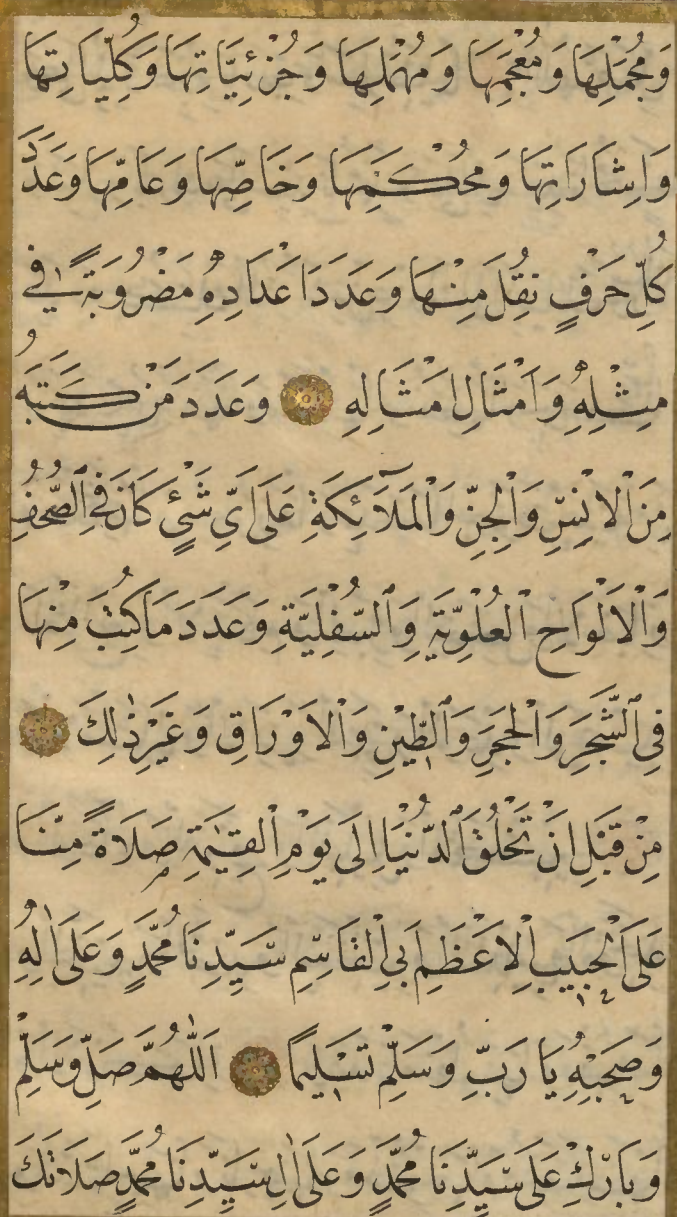 وَمُجْمَلِهَا وَمُعْجَمِهَا وَمُهْمَلِهَا وَجُزْئِيَّاتِهَا وَكُلِّيَّاتِهَا
وَاِشَارَاتِهَا وَمُحْكَمِهَا وَخَاصِّهَا وَعَامِّهَا وَعَدَدَ
كُلِّ حَرْفٍ نُقِلَ مِنْهَا وَعَدَدَ اَعْدَادِهِ مَضْرُوبَةً فِي
مِثْلِهِ وَاَمْثَالِ اَمْثَالِهِ وَعَدَدَ مَنْ كَتَبَهُ
مِنَ الْاِنْسِ وَالْجِنِّ وَالْمَلَآئِكَةِ عَلَى اَيِّ شَيْءٍ كَانَ فِي الصُّحُفِ
وَالْاَلْوَاحِ الْعُلْوِيَّةِ وَالسُّفْلِيَّةِ وَعَدَدَ مَا كُتِبَ مِنْهَا
فِي الشَّجَرِ وَالْحَجَرِ وَالطِّيْنِ وَالْاَوْرَاقِ وَغَيْرِ ذٰلِكَ
مِنْ قَبْلِ اَنْ تَخْلُقَ الدُّنْيَا اِلَى يَوْمِ الْقِيٰمَةِ صَلَاةً مِنَّا
عَلَى الْحَبِيبِ الْاَعْظَمِ اَبِي الْقَاسِمِ سَيِّدِنَا مُحَمَّدٍ وَعَلَى اٰلِهِ
وَصَحْبِهِ يَا رَبِّ وَسَلِّمْ تَسْلِيمًا اَللّٰهُمَّ صَلِّ وَسَلِّمْ
وَبَارِكْ عَلَى سَيِّدِنَا مُحَمَّدٍ وَعَلَى اٰلِ سَيِّدِنَا مُحَمَّدٍ صَلَاتَكَ